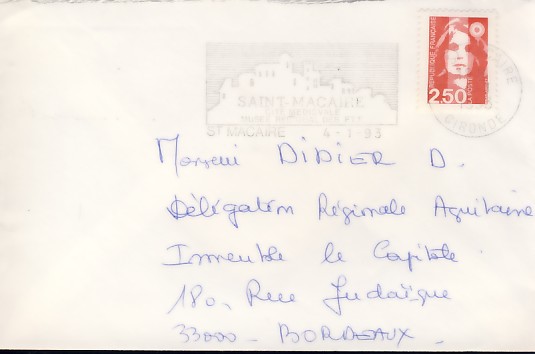 SAINT-MACAIRE
ST MACAIRE 4-1-93
REPUBLIQUE FRANÇAISE
2,50 LA POSTE
GIRONDE
Monsieur DIDIER D.
Délégation Régionale Aquitaine
Immeuble le Capitole
180, Rue Judaïque
33000 - BORDEAUX.